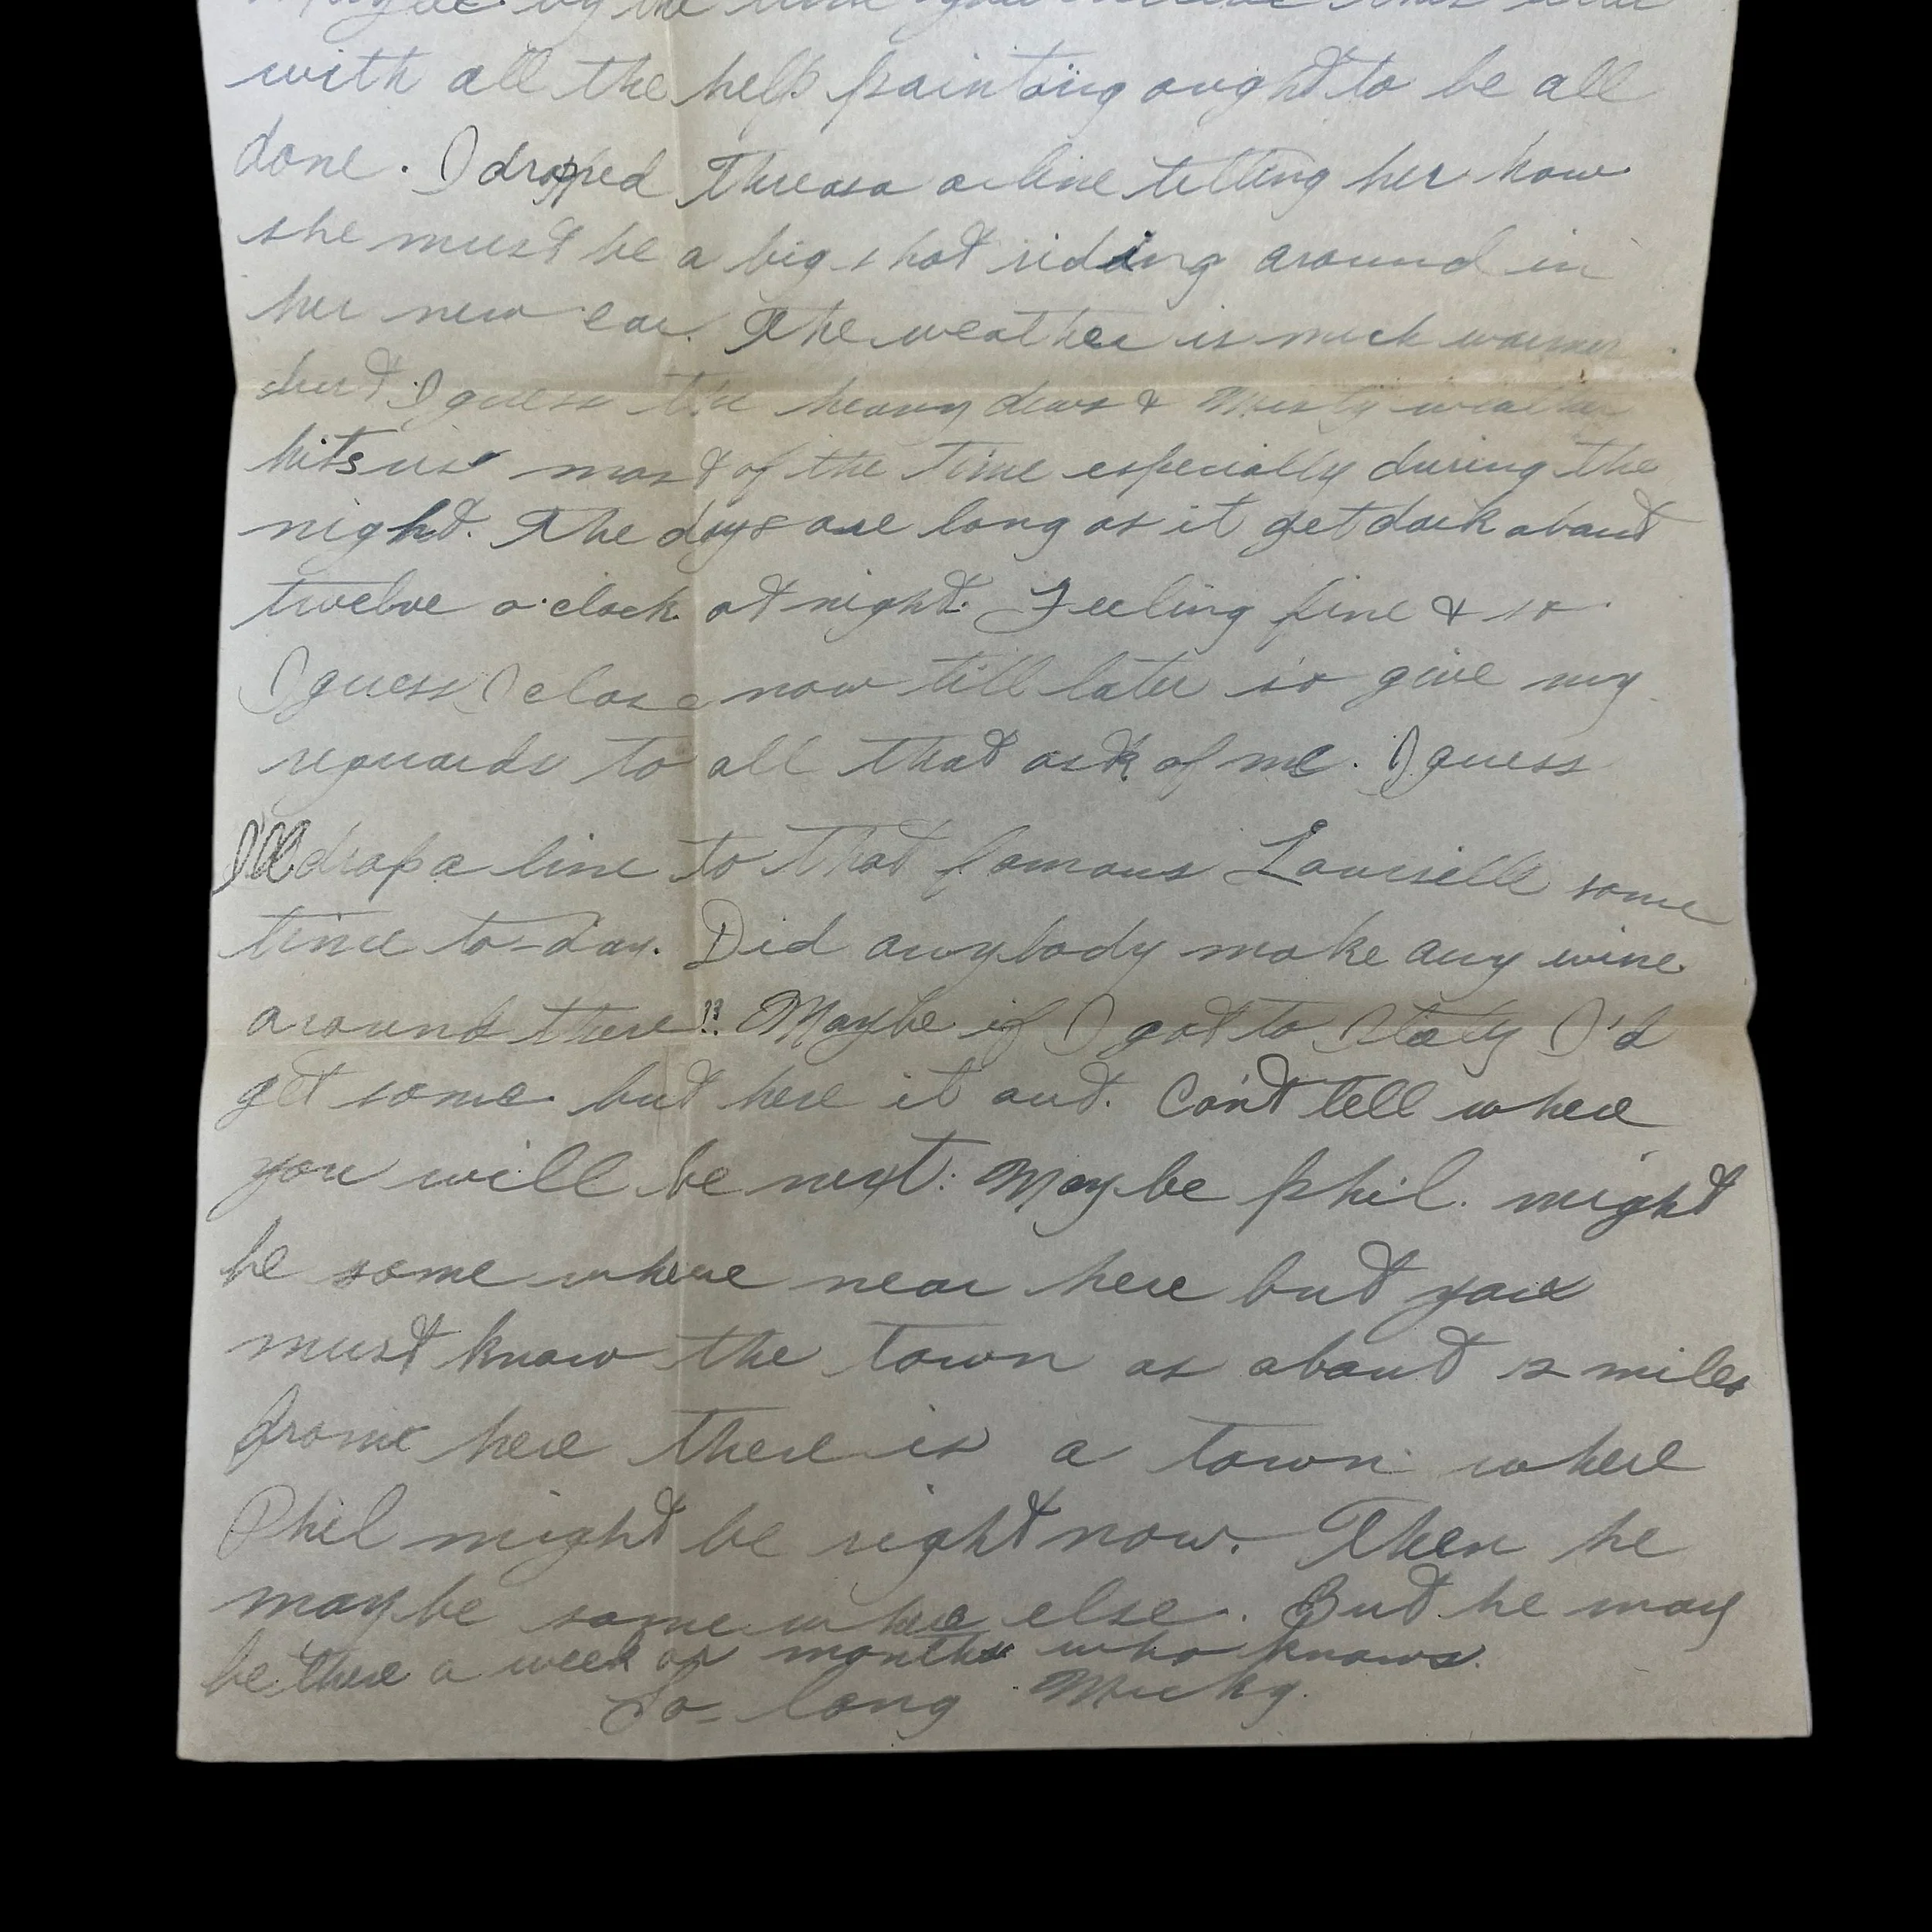 Maybe by the time you receive this
with all the help painting ought to be all
done. I dropped Threasa a line telling her how
she must be a big shot riding around in
her new car. The weather is much warmer
but I guess the heavy dews & Misty weather
hits us most of the time especially during the
night. The days are long as it get dark about
twelve o'clock at night. Feeling fine & so
I guess I close now till later so give my
reguards to all that ask of me. I guess
I'll drop a line to that famous Louiselle some
time to-day. Did anybody make any wine
around there?? Maybe if I got to Italy I'd
get some but here it out. Can't tell where
you will be next. Maybe Phil. might
be some where near here but you
must know the town as about 12 miles
from here there is a town where
Phil might be right now. Then he
maybe somewhere else. But he may
be there a week or months who knows.
So-long Micky.